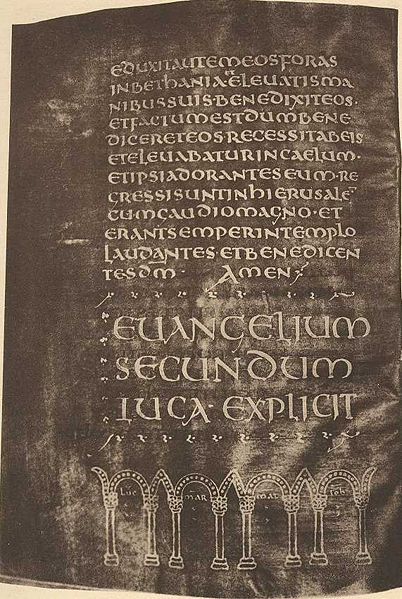 EDUXITAUTEMEOSFORAS
INBETHANIA·ET ELEUATISMA
NIBUSSUIS·BENEDIXITEOS·
ETFACTUMESTDUMBENE
DICERETEOS·RECESSITABEIS
ETELEUABATURINCAELUM·
ETIPSIADORANTESEUM·RE
GRESSISUNTINHIERUSALĒ
CUMGAUDIOMAGNO·ET
ERANTSEMPERINTEMPLO
LAUDANTES·ETBENEDICEN
TESDM· AMEN
EUANGELIUM
SECUNDUM
LUCA· EXPLICIT
LUC MAR MAT IOH